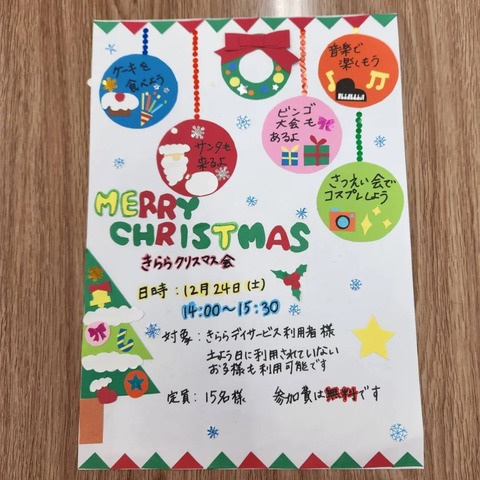 ケーキを
食べよう
音楽で
楽しもう
サンタも
来るよ
ビンゴ
大会も
あるよ
さつえい会で
コスプレしよう
MERRY
CHRISTMAS
きららクリスマス会
日時:12月24日(土)
14:00〜15:30
対象:きららデイサービス利用者様
土よう日に利用されていない
お子様も利用可能です
定員:15名様 参加費は無料です